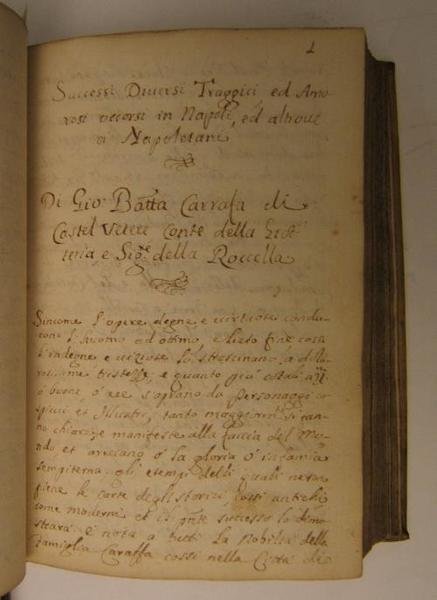 1
Successi Diversi Traggici ed Amo
rosi occorsi in Napoli, ed altroue
a Napoletani
Di Gio: Batta Carrafa di
Castel Vetere Conte della Grot
teria, e Sig.re della Roccella
Sincome l'opere degne, e uirtuose condu
cono l'huomo ad ottimo, e lieto fine cosi
l'indegne e uiziose lo strascinano a
e quanto più
ò buone, ò ree s'oprano da Personaggi co
spicui et Illustri, tanto si ran
no chiare, e manifeste alla faccia del Mo
ndo, et arrecano ò la gloria ò l'infamia
sempiterna gli esempi delli quali ne sono
piene le carte degli storici cossi antichi
come moderni et il successo lo dimo
strarà è nota a tutti la Nobiltà della
Famiglia Caraffa cossi nella Città di